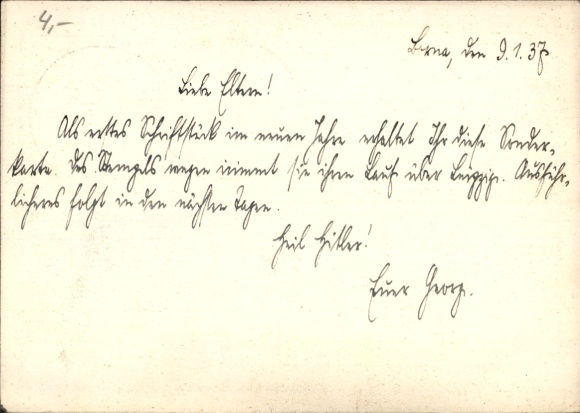 4,-
Borna, den 9.1.37
Liebe Eltern!
Als erstes Schriftstück im neuen Jahre erhaltet Ihr diese Sonder-
karte. Des Stempels wegen nimmt sie ihren Lauf über Leipzig. Ausführ-
licheres folgt in den nächsten Tagen.
Heil Hitler!
Euer Georg.